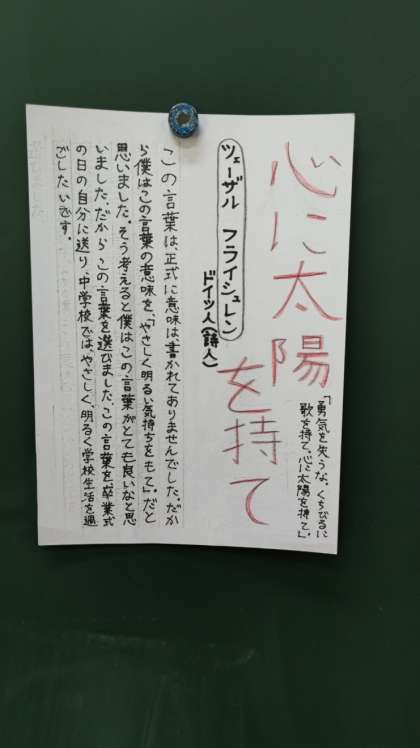 心に太陽
を持て
「勇気を失うな。くちびるに
歌を持て。心に太陽を持て」
ツェーザル フライシュレン
ドイツ人(詩人)
この言葉は、正式に意味は書かれてありませんでした。だか
ら僕はこの言葉の意味を、「やさしく明るい気持ちをもて」。だと
思いました。そう考えると僕はこの言葉がとても良いなと思
いました。だからこの言葉を選びました。この言葉を、卒業式
の日の自分に送り、中学校では、やさしく、明るく学校生活を過
ごしたいです。